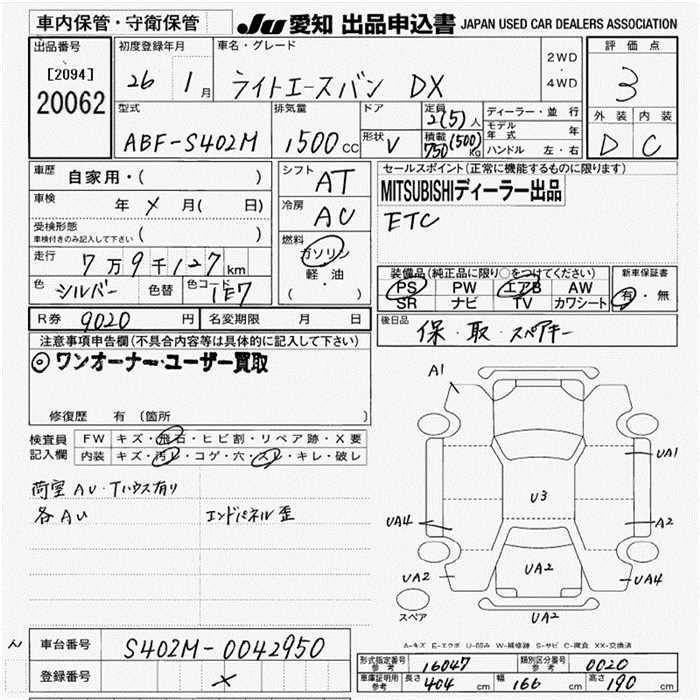 車内保管・守衛保管
JU 愛知 出品申込書 JAPAN USED CAR DEALERS ASSOCIATION
出品番号
[2094]
20062
初度登録年月
26 1月
車名・グレード
ライトエースバン DX
2WD
・
4WD
評価点
3
外装 内装
D C
型式
ABF-S402M
排気量
1500cc
ドア
形状 V
定員 2(5)人
積載 750(500)kg
ディーラー・並行
モデル年式 年
ハンドル 左・右
車歴 自家用・( )
車検 年 × 月( 日)
受検形態
車検付きのみ記入して下さい ( )
走行 7万9千127km
色 シルバー 色替 色コード 1E7
シフト AT
冷房 AC
燃料
ガソリン
軽・油
( )
セールスポイント(正常に機能するものに限ります)
MITSUBISHIディーラー出品
ETC
装備品(純正品に限り○をつけてください)
PS PW エアB AW
SR ナビ TV カワシート
新車保証書
有・無
R券 9020円 名変期限 月 日
後日品 保・取・スペアキー
注意事項申告欄(不具合内容等は具体的に記入して下さい)
◎ワンオーナー・ユーザー買取
修復歴 有(箇所 )
検査員
記入欄
FW キズ・飛石・ヒビ割・リペア跡・X要
内装 キズ・汚レ・コゲ・穴・スレ・キレ・破レ
荷室AU・Tハウス有り
各AU エンドパネル歪
A1
UA1
U3
UA4
A2
UA2
UA2
UA4
スペア
UA2
A-キズ E-エクボ U-凹み W-補修跡 S-サビ C-腐食 XX-交換済
車台番号 S402M-0042950
登録番号 ×
形式指定番号
参考 16047
類別区分番号
参考 0020
車庫証明用
参考 長さ 404cm 幅 166cm 高さ 190cm